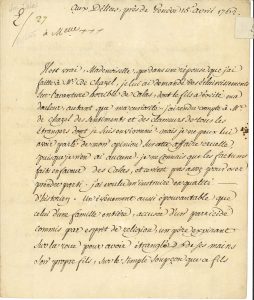 Aux Délices, près de Genève 15 avril 1762.
à Melle +++
Il est vrai, Mademoiselle, que dans une réponse que j'ai
faite à Mr de Chazel, je lui ai demandé des éclaircissements
sur l'avanture horrible de Calas, dont le fils a excité ma
douleur autant que ma curiosité. J'ai rendu compte à Mr
de Chazel des sentiments et des clameurs de tous les
étrangers dont je suis environné, mais je ne peux lui
avoir parlé de mon opinion sur cette affaire cruelle
puisque je n'en ai aucune. je ne connais que les factums
faits en faveur des Calas, et ce n'est pas assez pour oser
prendre parti. j'ai voulu m'instruire en qualité
d'historien. Un événement aussi épouvantable que
celui d'une famille entière, accusée d'un parricide
commis par esprit de religion, un père expirant
sur la roue pour avoir étranglé de ses mains
son propre fils, sur le simple soupçon que ce fils